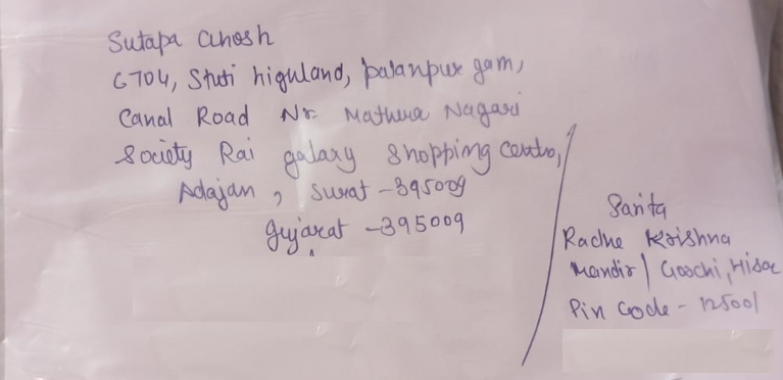 Sutapa Ghosh
G704, Stuti highland, palanpur gam,
Canal Road Nr. Mathura Nagari
Society Rai galaxy shopping centre,
Adajan, Surat - 395009
gujarat - 395009
Sarita
Radhe Krishna
Mandir / Goschi, Hisar
Pin Code - 125001